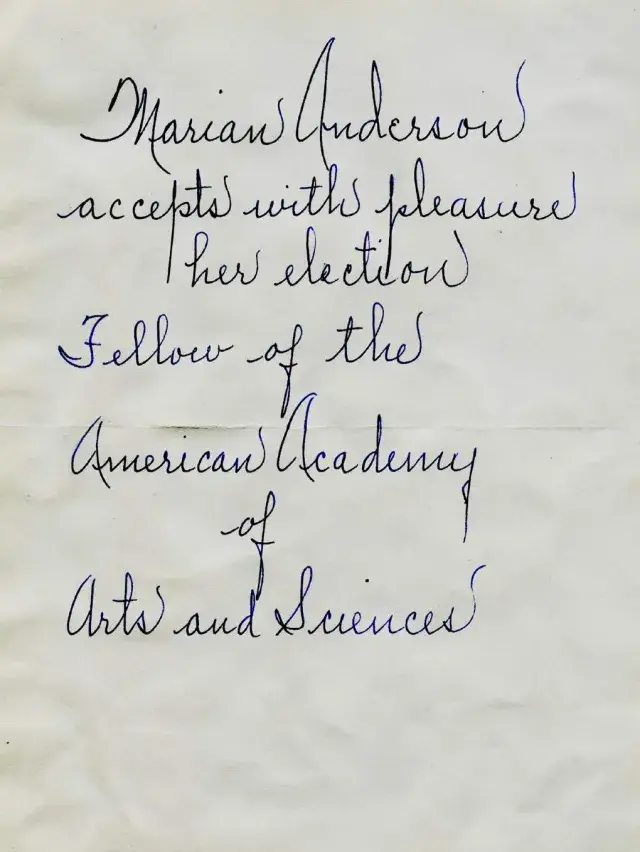 Marian Anderson
accepts with pleasure
her election
Fellow of the
American Academy
of
Arts and Sciences